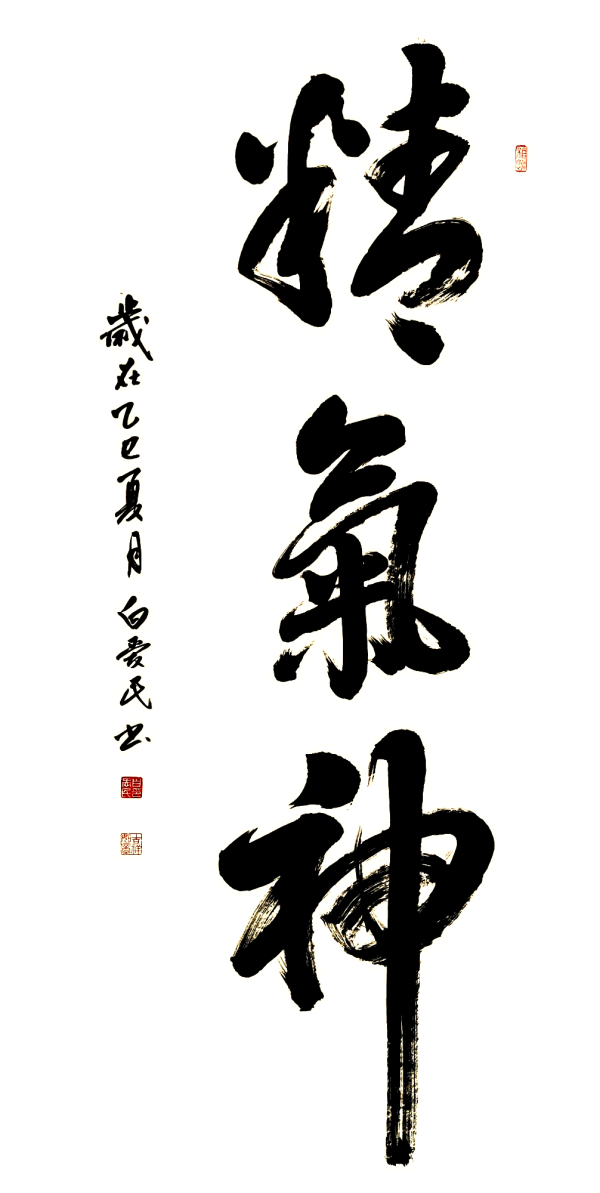 精氣神
歲在乙巳夏月白爱民书